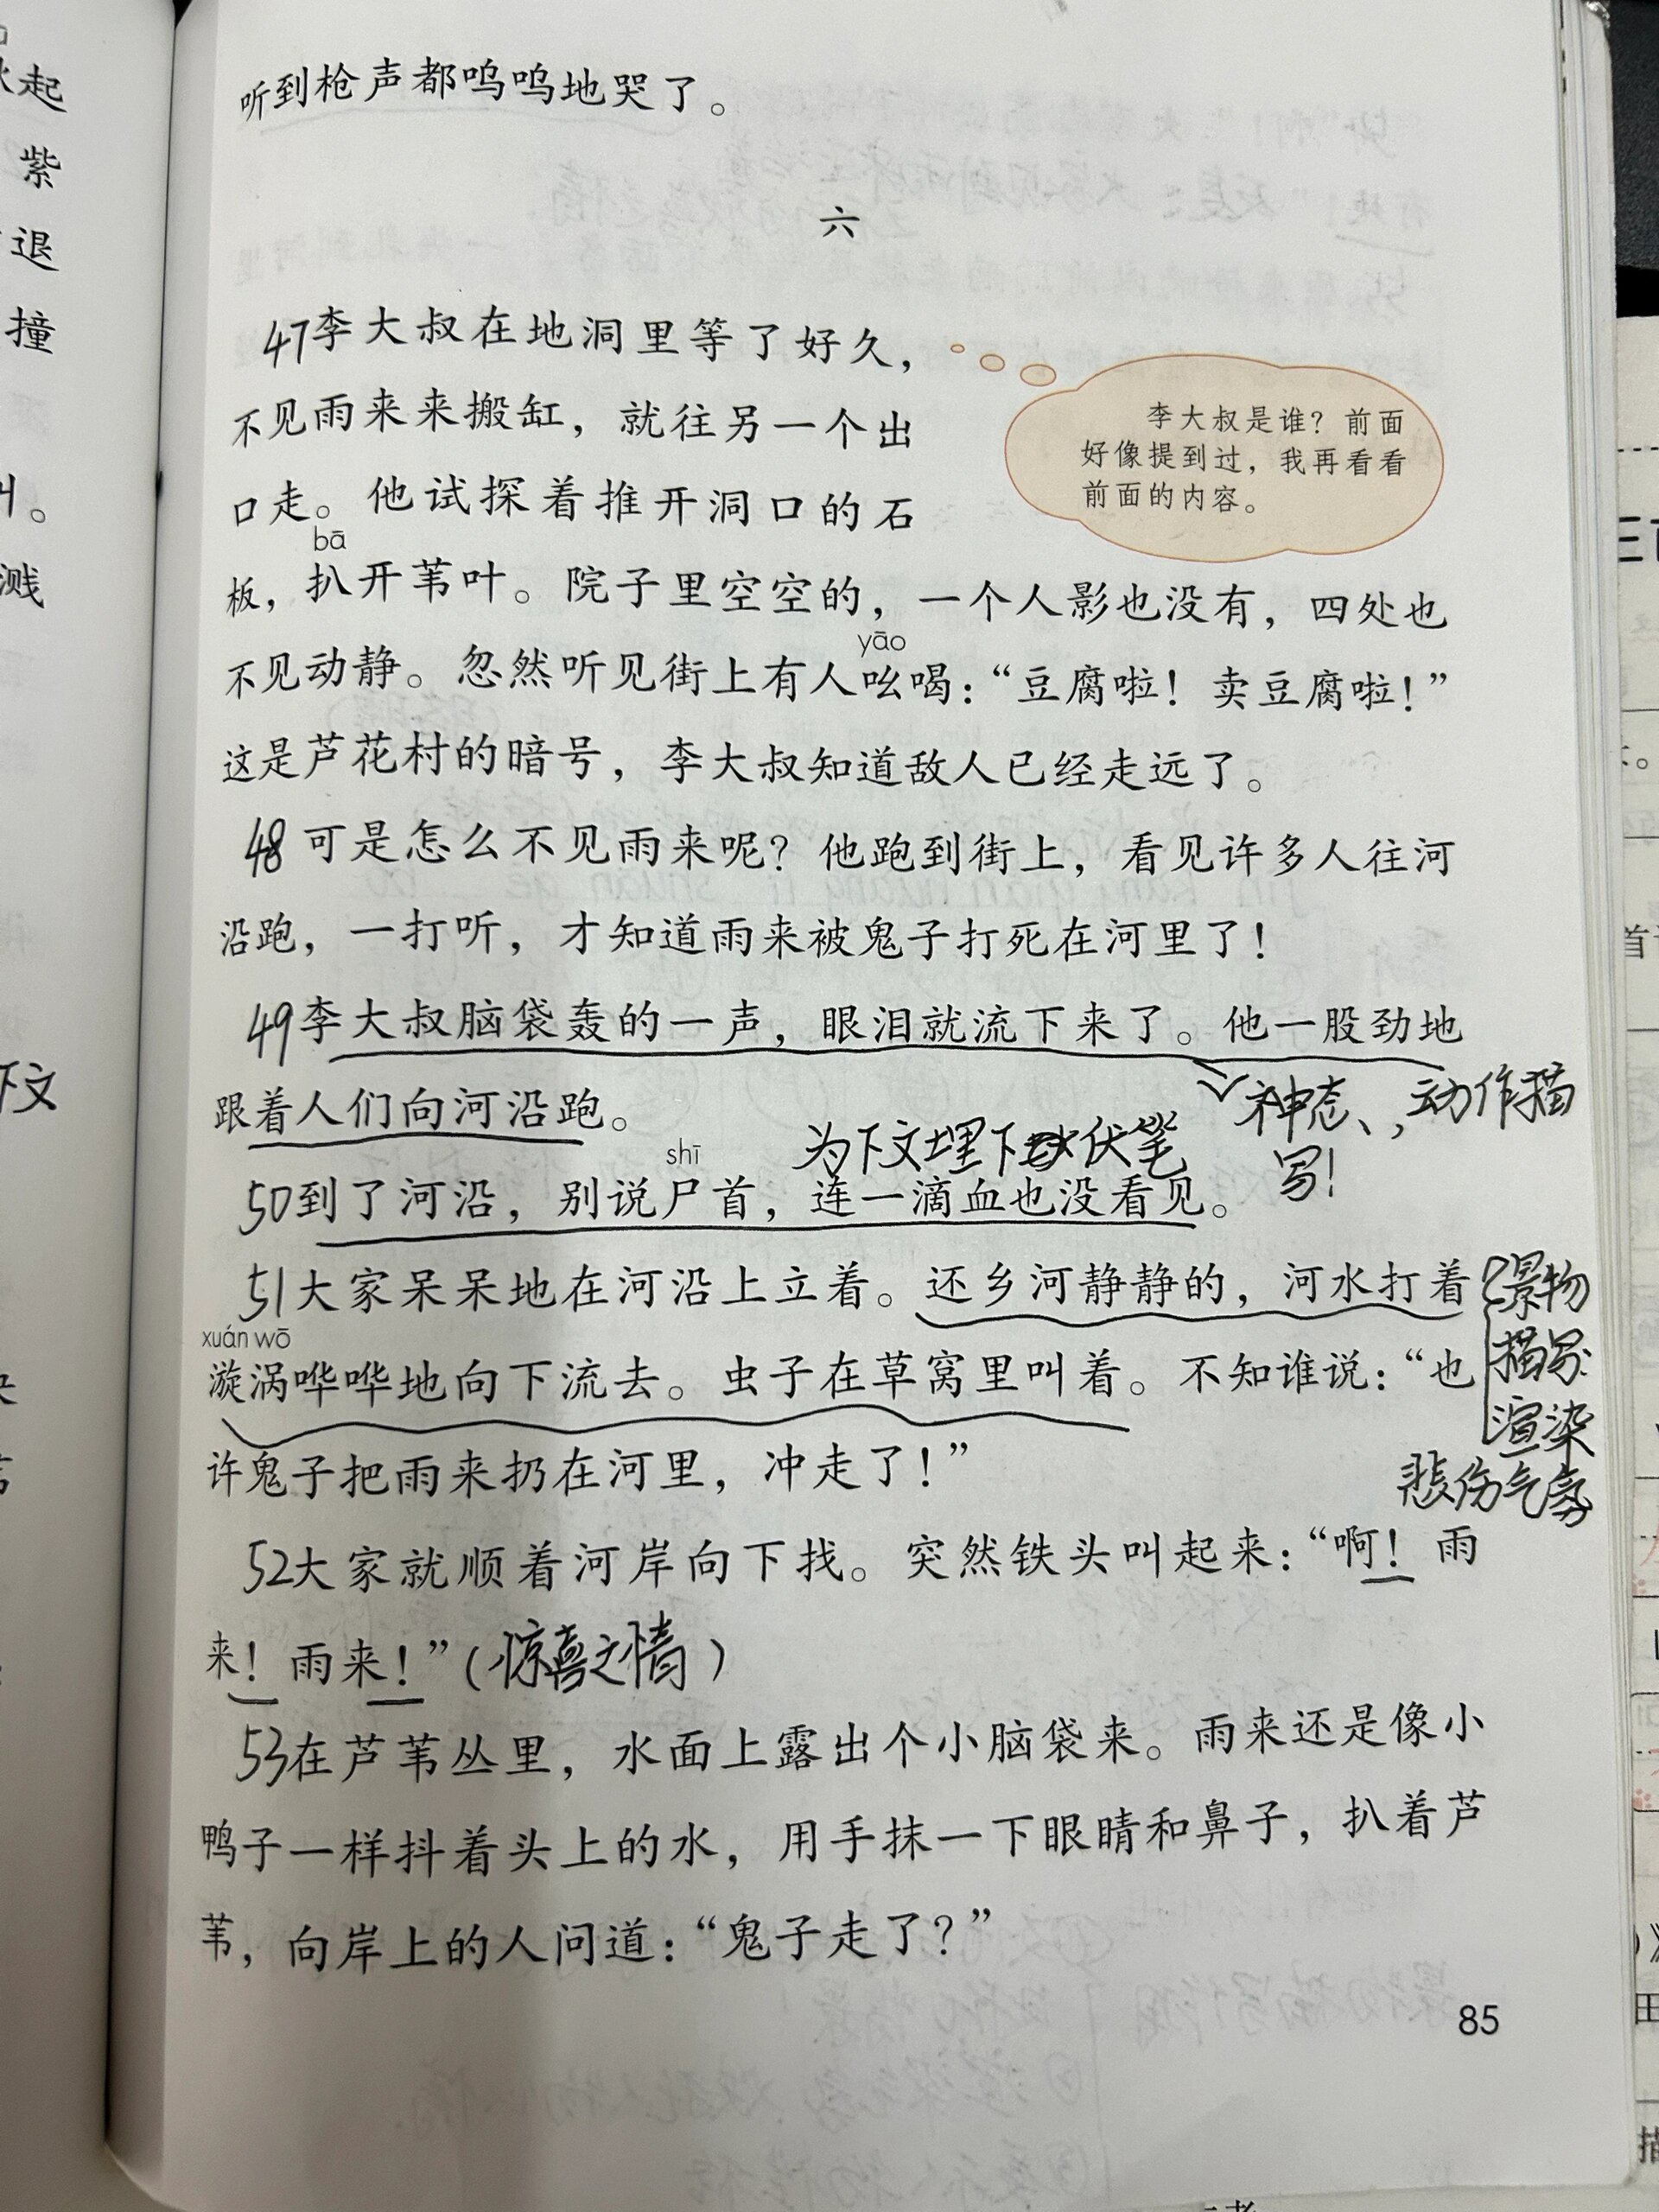 听到枪声都呜呜地哭了。
六
47李大叔在地洞里等了好久，
不见雨来来搬缸，就往另一个出
口走。他试探着推开洞口的石
bā
板，扒开苇叶。院子里空空的，一个人影也没有，四处也
yāo
不见动静。忽然听见街上有人吆喝：“豆腐啦！卖豆腐啦！”
这是芦花村的暗号，李大叔知道敌人已经走远了。
李大叔是谁？前面
好像提到过，我再看看
前面的内容。
48可是怎么不见雨来呢？他跑到街上，看见许多人往河
沿跑，一打听，才知道雨来被鬼子打死在河里了！
49李大叔脑袋轰的一声，眼泪就流下来了。他一股劲地
跟着人们向河沿跑。
神态、，动作描
写！
为下文埋下伏笔
shī
50到了河沿，别说尸首，连一滴血也没看见。
51大家呆呆地在河沿上立着。还乡河静静的，河水打着
xuán wō
漩涡哗哗地向下流去。虫子在草窝里叫着。不知谁说：“也
许鬼子把雨来扔在河里，冲走了！”
景物
描写
渲染
悲伤气氛
52大家就顺着河岸向下找。突然铁头叫起来：“啊！雨
来！雨来！”（惊喜之情）
53在芦苇丛里，水面上露出个小脑袋来。雨来还是像小
鸭子一样抖着头上的水，用手抹一下眼睛和鼻子，扒着芦
苇，向岸上的人问道：“鬼子走了？”
85
起
紫
退
撞
。
溅
下文